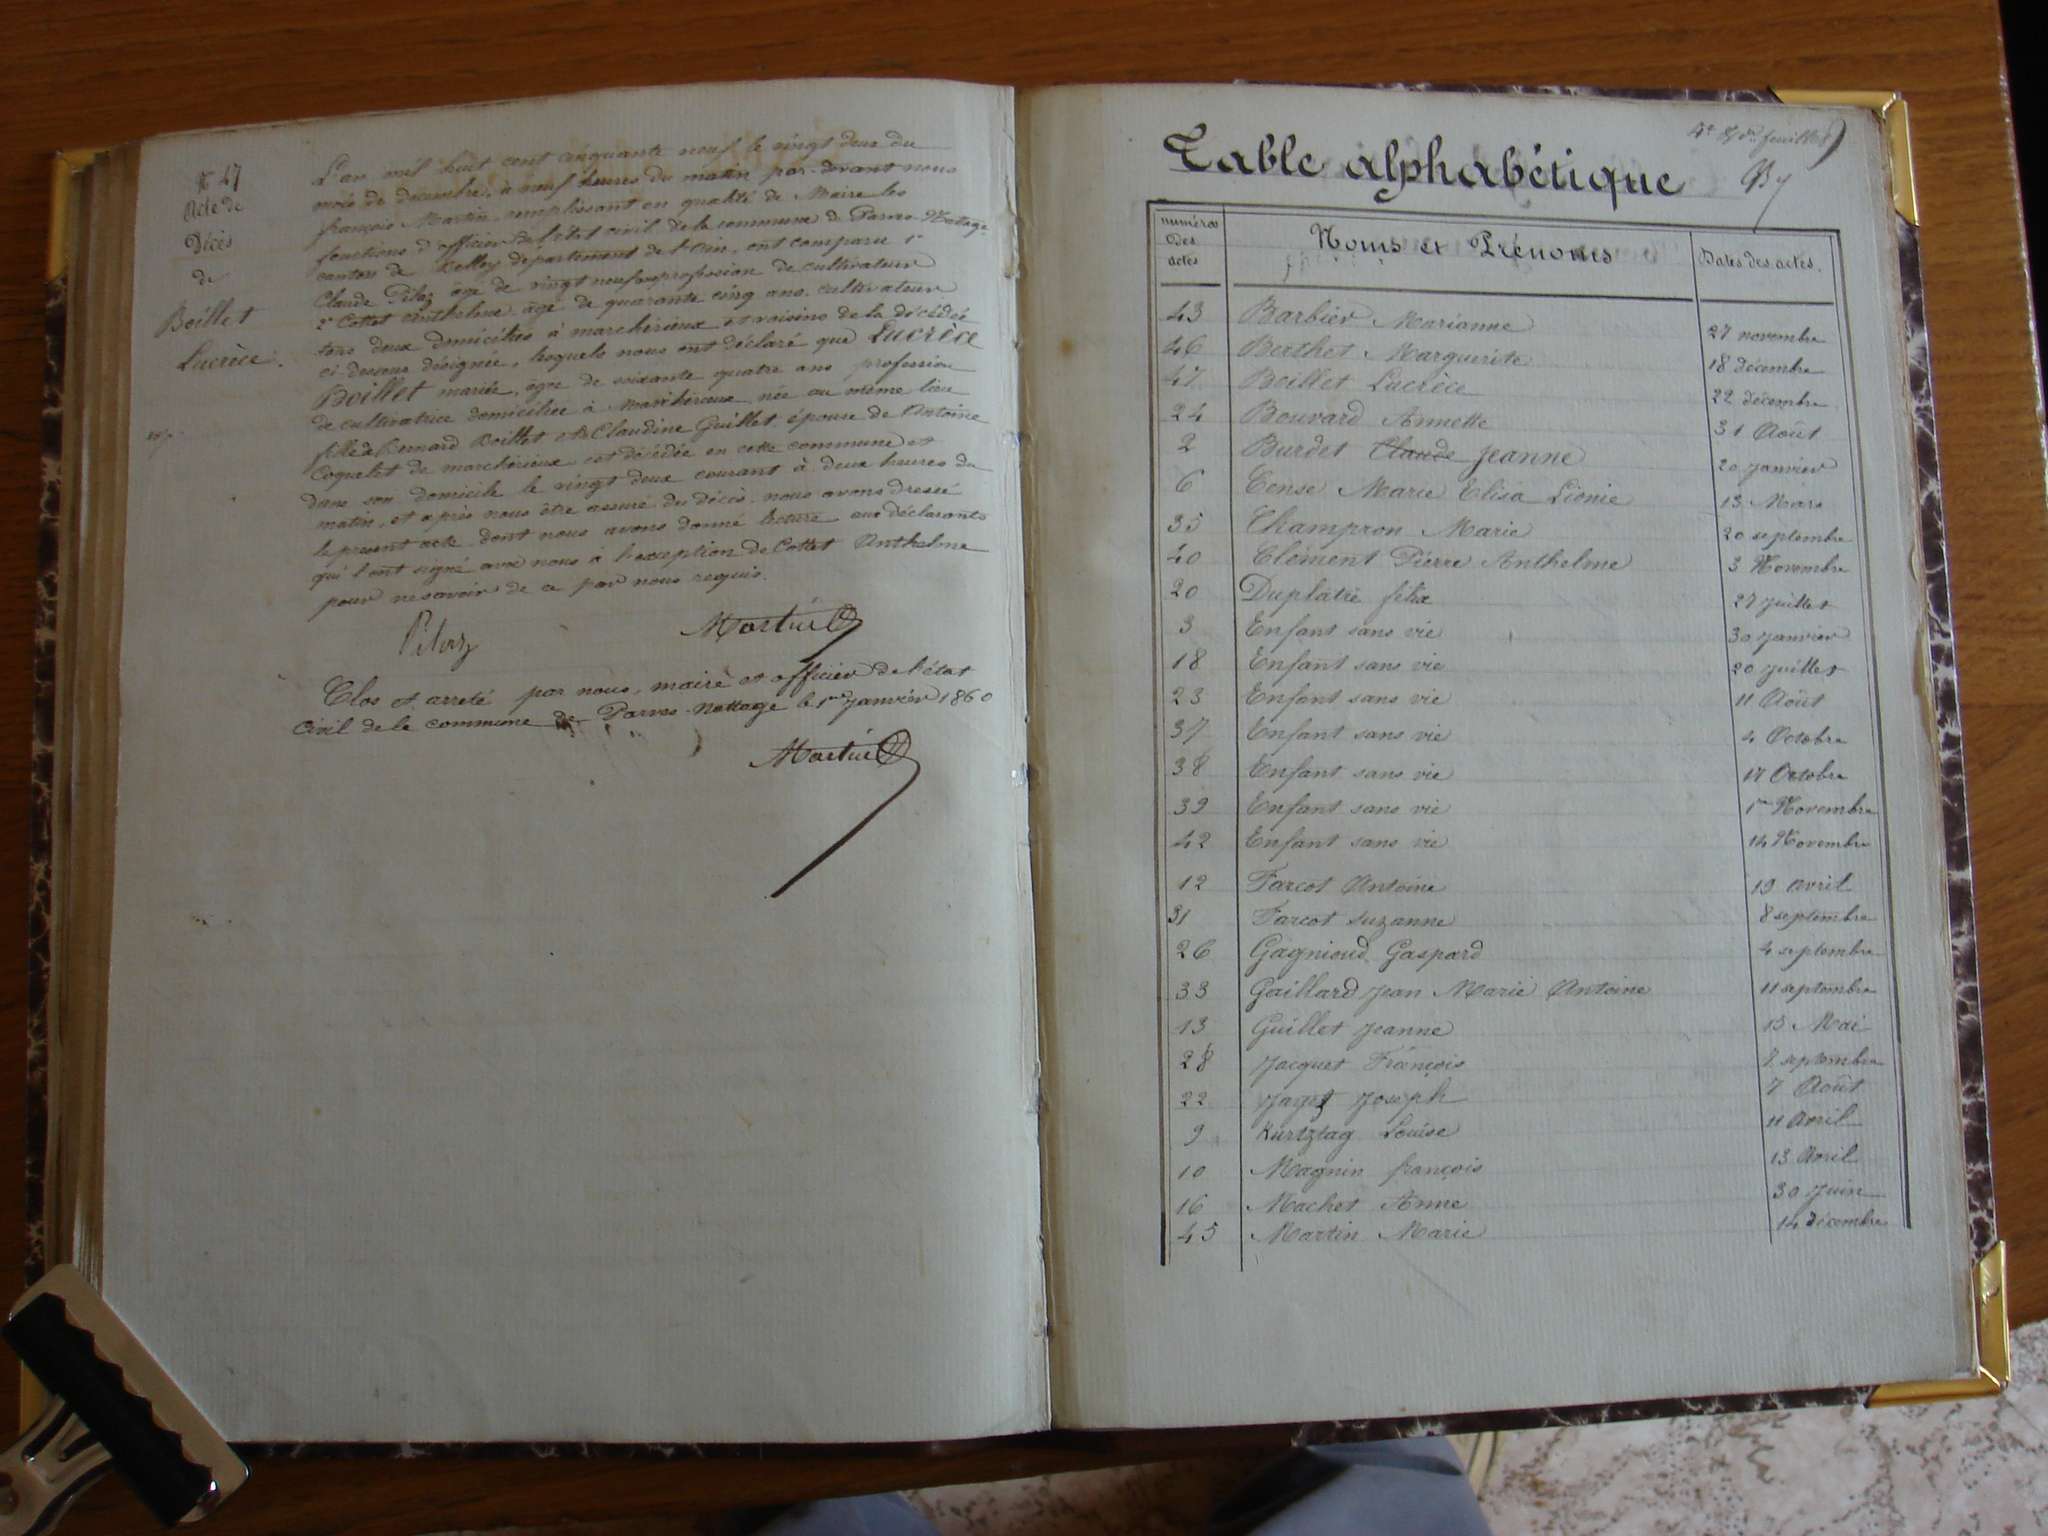 N° 47
Acte de
Décès
de
Boillet
Lucrèce.
L'an mil huit cent cinquante neuf le vingt deux du
mois de décembre, à neuf heures du matin par-devant nous
françois Martin remplissant en qualité de Maire les
fonctions d'officier de l'état civil de la commune de Parves-Nattage
canton de Belley département de l'Ain, ont comparu 1°
Claude Piloz âgé de vingt neuf ans profession de cultivateur
2° Cottet Anthelme âgé de quarante cinq ans cultivateur
tous deux domiciliés à marchérieux et voisins de la décédée
ci-dessus désignée, lesquels nous ont déclaré que Lucrèce
Boillet mariée, âgée de soixante quatre ans profession
de cultivatrice domiciliée à Marchérieux née au même lieu
fille de Bernard Boillet et de Claudine Guillet épouse de Antoine
Coquelet de marchérieux est décédée en cette commune et
dans son domicile le vingt deux courant à deux heures du
matin, et après nous être assuré du décès, nous avons dressé
le présent acte dont nous avons donné lecture aux déclarants
qui l'ont signé avec nous à l'exception de Cottet Anthelme
pour ne savoir de ce par nous requis.
Piloz Martin
Clos et arreté par nous, maire et officier de l'état
Civil de la commune de Parves-Nattage le 1er Janvier 1860
Martin
4e & der feuillet
Table alphabétique
numéros des actes Noms et Prénoms Dates des actes.
43 Barbier Marianne 27 novembre
46 Berthet Marguerite 18 décembre
47 Boillet Lucrèce 22 décembre
24 Bouvard Annette 31 Août
2 Burdet Claude Jeanne 20 Janvier
6 Cense Marie Elisa Lionie 13 Mars
35 Champron Marie 20 septembre
40 Clément Pierre Anthelme 3 Novembre
20 Duplâtre félix 27 Juillet
3 Enfant sans vie 30 Janvier
18 Enfant sans vie 20 Juillet
23 Enfant sans vie 11 Août
37 Enfant sans vie 4 Octobre
38 Enfant sans vie 17 Octobre
39 Enfant sans vie 1er Novembre
42 Enfant sans vie 14 Novembre
12 Farcot Antoine 19 avril
31 Farcot suzanne 8 septembre
26 Gagnioud Gaspard 4 septembre
33 Gaillard Jean Marie Antoine 11 septembre
13 Guillet Jeanne 15 Mai
28 Jacquet François 7 septembre
22 Jaget Joseph 7 Août
9 Kurtztag Louise 11 Avril
10 Magnin françois 13 Avril
16 Machet Anne 30 Juin
45 Martin Marie 14 décembre